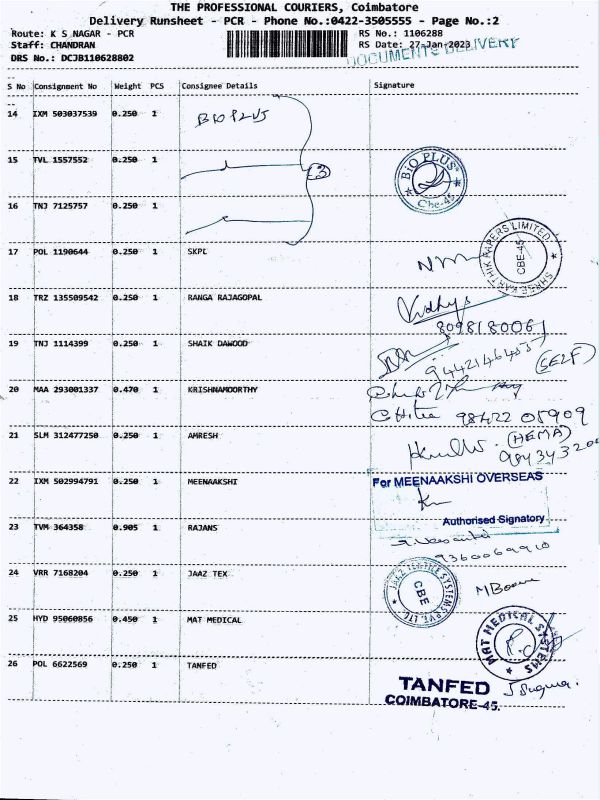 THE PROFESSIONAL COURIERS, Coimbatore
Delivery Runsheet - PCR - Phone No.:0422-3505555 - Page No.:2
Route: K S NAGAR - PCR
RS No.: 1106288
Staff: CHANDRAN
RS Date: 27-Jan-2023
DRS No.: DCJB110628802
DOCUMENTS DELIVERY
S No Consignment No Weight PCS Consignee Details Signature
14 IXM 503037539 0.250 1 BIO PLUS
15 TVL 1557552 0.250 1
3
BIO PLUS
Cbe-45
16 TNJ 7125757 0.250 1
17 POL 1190644 0.250 1 SKPL
SHREE KARTHIK PAPERS LIMITED
CBE-45
18 TRZ 135509542 0.250 1 RANGA RAJAGOPAL
Vidhya
8098180061
19 TNJ 1114399 0.250 1 SHAIK DAWOOD
(SELF)
20 MAA 293001337 0.470 1 KRISHNAMOORTHY
98422 05909
21 SLM 312477250 0.250 1 AMRESH
(HEMA)
22 IXM 502994791 0.250 1 MEENAAKSHI
For MEENAAKSHI OVERSEAS
Authorised Signatory
23 TVM 364358 0.905 1 RAJANS
24 VRR 7168204 0.250 1 JAAZ TEX
CBE
25 HYD 95060856 0.450 1 MAT MEDICAL
MAT MEDICAL SYSTEMS
26 POL 6622569 0.250 1 TANFED
TANFED
COIMBATORE-45.